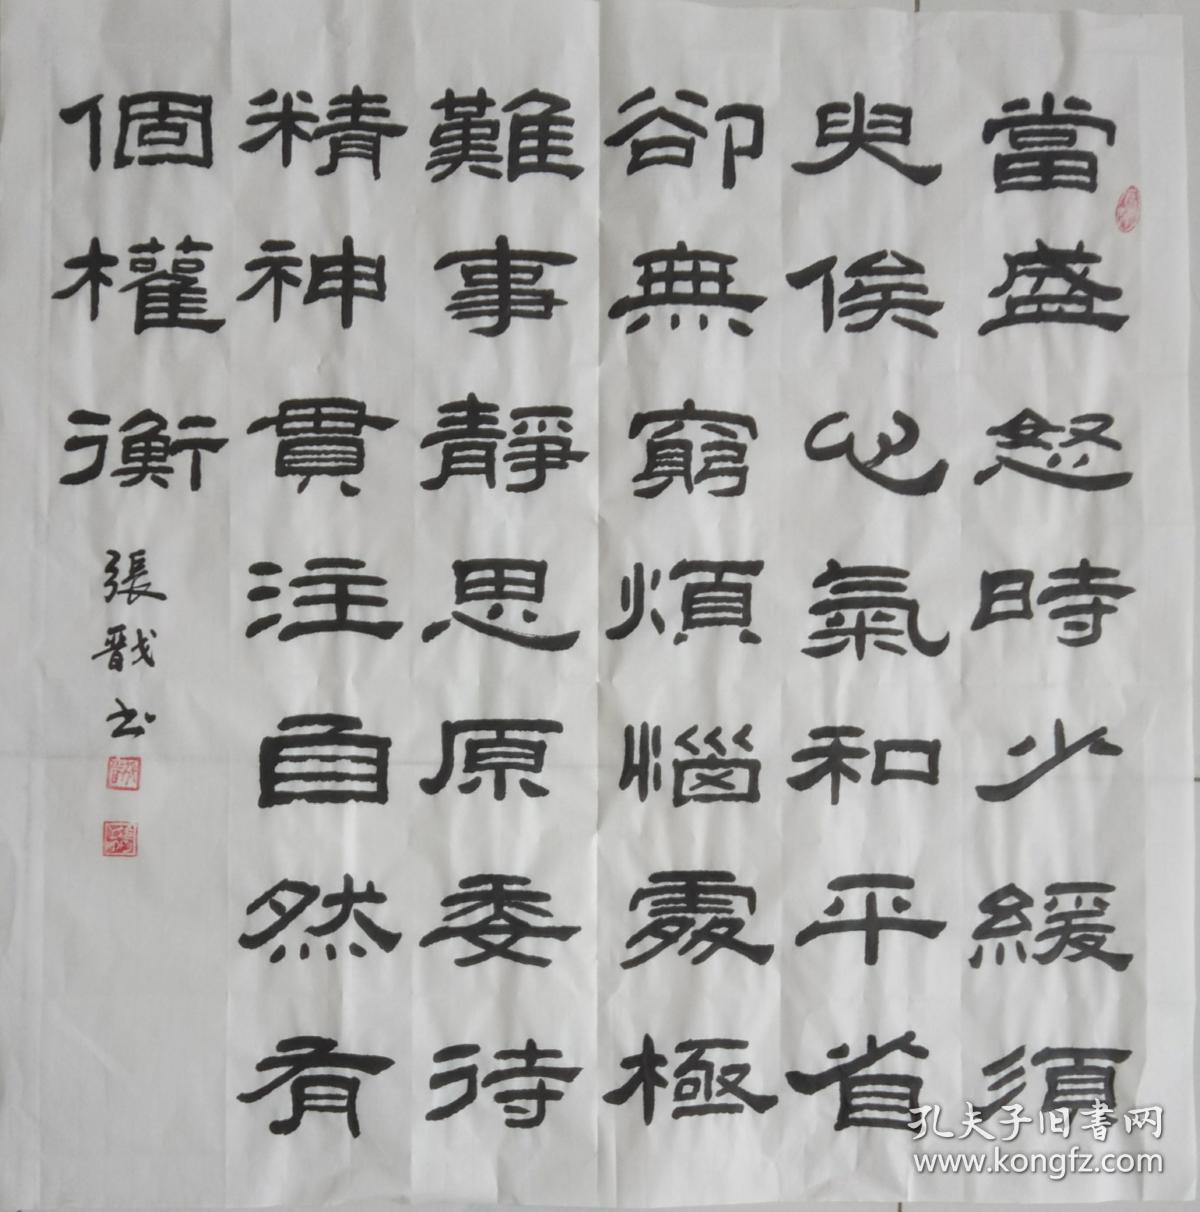 當盛怒時少緩須
臾俟心氣和平省
卻無窮煩惱處極
難事靜思原委待
精神貫注自然有
個權衡
張戩书
孔夫子旧書网
www.kongfz.com